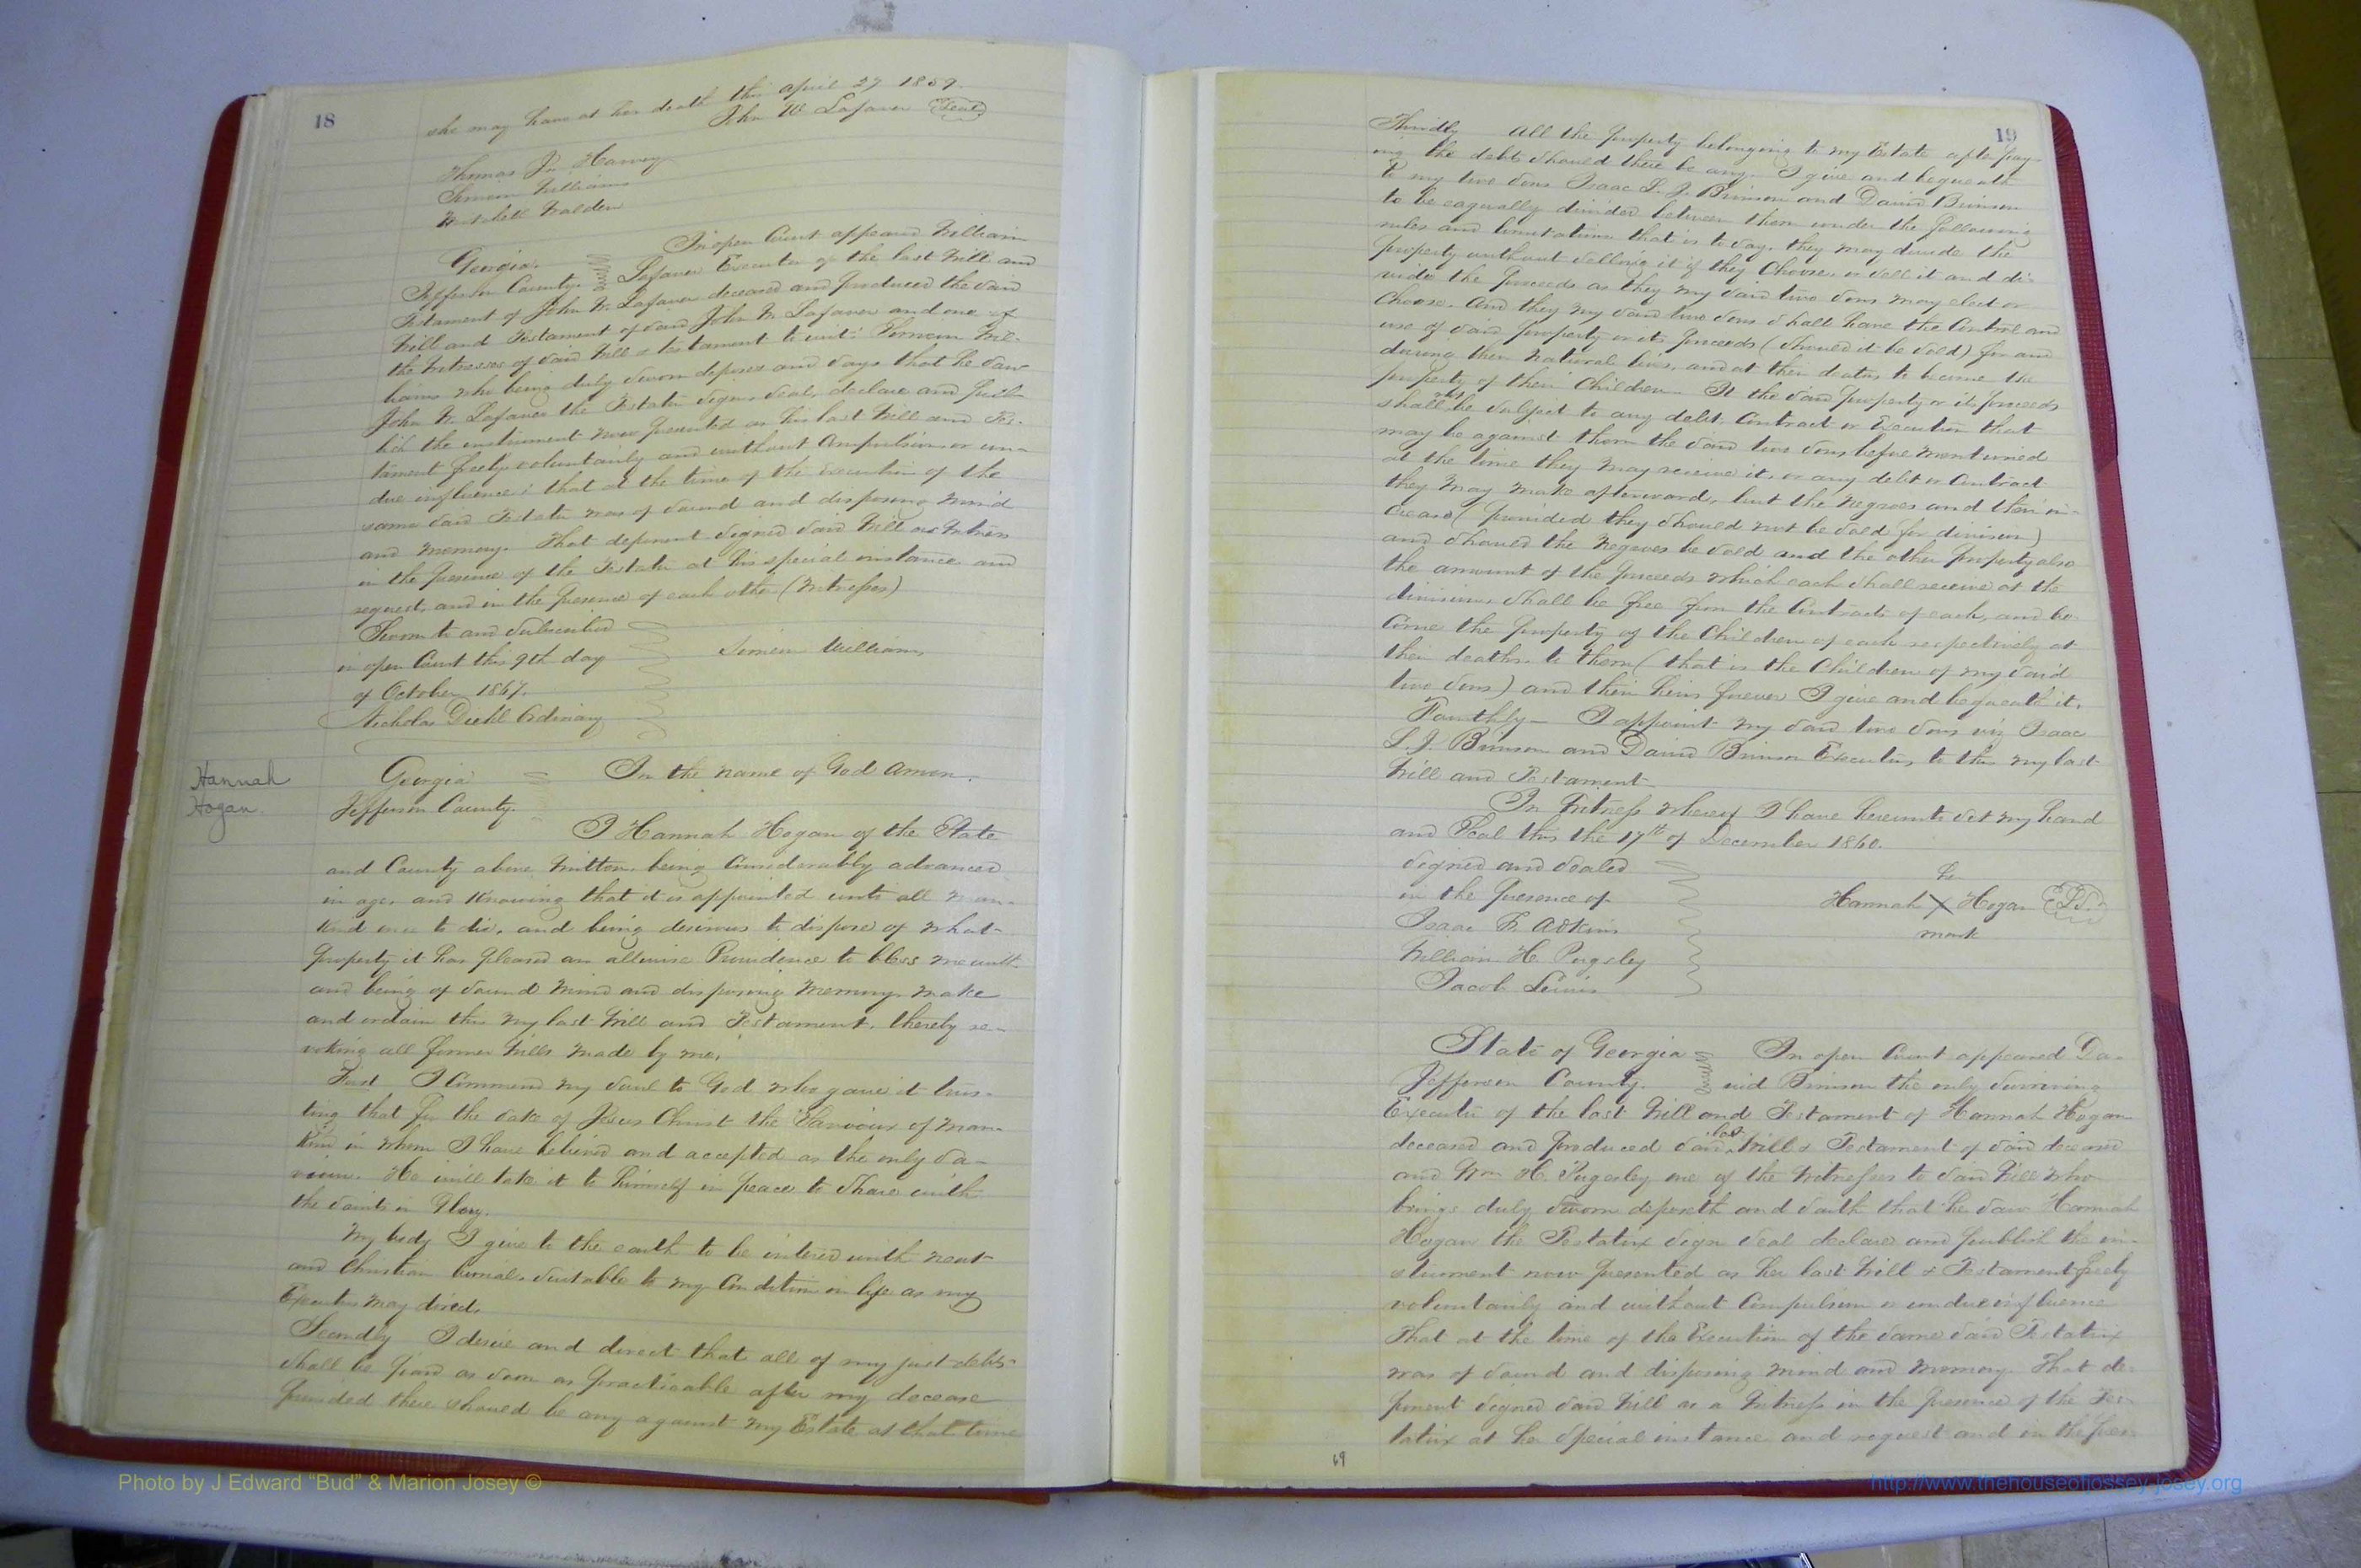 18
she may have at her death this April 27 1859.
John W Lafaver Seal
Thomas Harvey
Simeon Williams
Mitchell Walden
Georgia.
Jefferson County.
In open Court appeared William
Lafaver Executor of the last Will and
Testament of John W. Lafaver deceased and produced the said
Will and Testament of said John W. Lafaver and one of
the Witnesses of said Will & testament to wit: Simeon Wil-
liams who being duly sworn deposes and says that he saw
John W. Lafaver the Testator sign, seal, declare and pub-
lish the instrument now presented as his last Will and Tes-
tament freely voluntarily and without Compulsion or un-
due influence; that at the time of the execution of the
same said Testator was of sound and disposing mind
and memory. That deponent signed said Will as Witness
in the presence of the Testator at his special instance and
request, and in the presence of each other (Witnesses)
Sworn to and subscribed
in open Court this 9th day
of October 1867.
Nicholas Diehl Ordinary
Simeon Williams
Hannah
Hogan.
Georgia
Jefferson County.
In the name of God Amen.
I Hannah Hogan of the State
and County above Written, being Considerably advanced
in age, and Knowing that it is appointed unto all man-
kind once to die, and being desirous to dispose of what
property it has pleased an allwise Providence to bless me with
and being of sound Mind and disposing Memory, make
and ordain this my last Will and Testament, thereby re-
voking all former Wills made by me.
First I Commend my soul to God who gave it trus-
ting that for the sake of Jesus Christ the Saviour of Man-
kind in whom I have believed and accepted as the only Sa-
viour. He will take it to himself in peace to share with
the saints in Glory.
My body I give to the earth to be intered with neat
and Christian burial, suitable to my Condition in life as my
Executors may direct.
Secondly I desire and direct that all of my just debts
shall be paid as soon as practicable after my decease
provided there should be any against my Estate at that time
19
Thirdly All the property belonging to my Estate after pay-
ing the debts should there be any. I give and bequeath
to my two sons Isaac L. J. Brinson and David Brinson
to be eaqually divided between them under the following
rules and limitations that is to say, they may divide the
property without selling it if they Choose, or sell it and di-
vide the proceeds as they my said two sons may elect or
Choose. And they my said two sons shall have the Control and
use of said property or its proceeds (should it be sold) for and
during their natural lives, and at their deaths, to become the
property of their Children. If the said property or its proceeds
shall not be subject to any debt, Contract or Execution that
may be against them the said two sons before mentioned
at the time they may receive it, or any debt or Contract
they may make afterwards, but the Negroes and their in-
crease (provided they should not be sold for division)
and should the Negroes be sold and the other property also
the amount of the proceeds which each shall receive at the
division, shall be free from the Contracts of each, and be-
come the property of the Children of each respectively at
their deaths to them (that is the Children of my said
two sons) and their heirs forever I give and bequeath it.
Fourthly— I appoint my said two sons viz Isaac
L. J. Brinson and David Brinson Executors to this my last
Will and Testament.
In Witness whereof I have hereunto set my hand
and Seal this the 17th of December 1860.
signed and sealed
in the presence of
Isaac F. Adkins
William H. Pugsley
Jacob Lewis
her
Hannah X Hogan L.S.
mark
State of Georgia
Jefferson County.
In open Court appeared Da-
vid Brinson the only surviving
Executor of the last Will and Testament of Hannah Hogan
deceased and produced said last Will & Testament of said deceased
and Wm H. Pugsley one of the Witnesses to said Will who
being duly sworn deposeth and saith that he saw Hannah
Hogan the Testatrix sign seal declare and publish the in-
strument now presented as her last Will & Testament freely
voluntarily and without Compulsion or undue influence
That at the time of the Execution of the same said Testatrix
was of sound and disposing mind and memory. That de-
ponent signed said Will as a Witness in the presence of the Tes-
tatrix at her special instance and request and in the pres-
69
Photo by J Edward "Bud" & Marion Josey ©
http://www.thehouseofjossey-josey.org